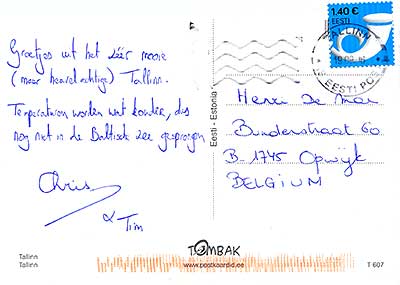 Groetjes uit het zéér mooie
(maar heuvelachtige) Tallinn.
Temperaturen worden wat kouder, dus
nog niet in de Baltische zee gesprongen
Chris
& Tim
1.40 €
EESTI
TALLINN
EESTI POST
Eesti - Estonia
Henri De Mar
Bunderstraat 60
B-1745 Opwijk
BELGIUM
Tallinn
Tallinn
TOMBAK
www.postkaardid.ee
T 607